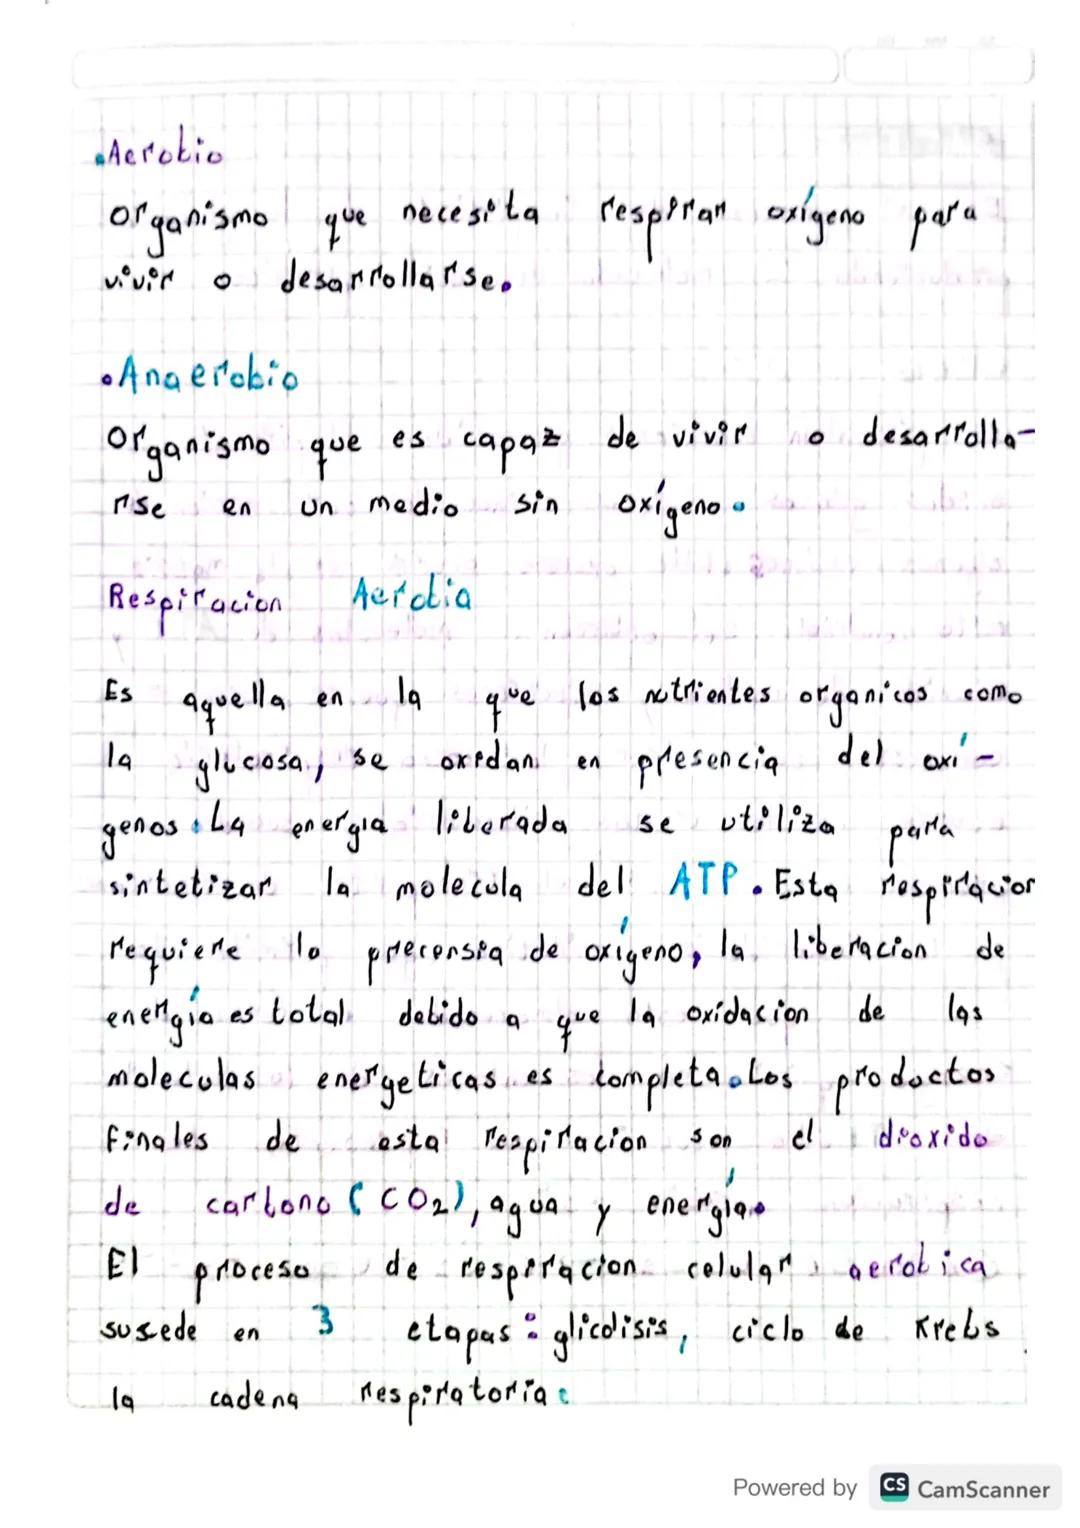 •Aerobio
organismo que necesita respiran oxígeno para
vivir o desarrollarse.
•Anaerobio
Organismo que es capaz de vivir o desarrolla-
rse en un medio sin oxígeno.
Respiracion Aerobia
Es aquella en la que los nutrientes organicos como
la glucosa, se oxidan en presencia del oxí-
genos. La energia liberada se utiliza para
sintetizar la molecula del ATP. Esta respiracion
requiere la precensia de oxígeno, la liberacion de
energía es total debido a que la oxidacion de las
moleculas energeticas es completa. Los productos
finales de esta respiracion son el dioxido
de carbono (CO2), agua y energía.
El proceso de respiracion celular aerobica
susede en 3 etapas: glicolisis, ciclo de Krebs
la cadena respiratoria:
Powered by CS CamScanner